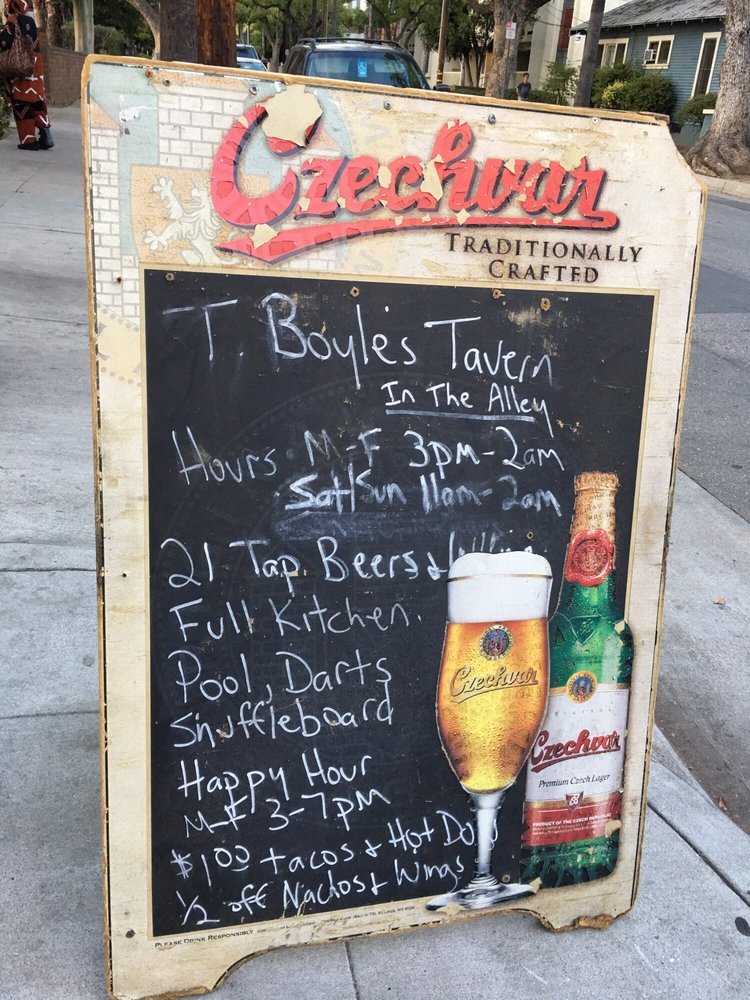 Czechvar
TRADITIONALLY
CRAFTED
T. Boyle's Tavern
In The Alley
Hours. M-F 3pm-2am
Sat/Sun 11am-2am
21 Tap Beers &
Full Kitchen.
Pool, Darts
Shuffleboard
Happy Hour
M-F 3-7pm
$1.00 tacos & Hot Dogs
1/2 off Nachos & Wings
Czechvar
ORIGINAL
Czechvar
Premium Czech Lager
PRODUCT OF THE CZECH REPUBLIC
PLEASE DRINK RESPONSIBLY